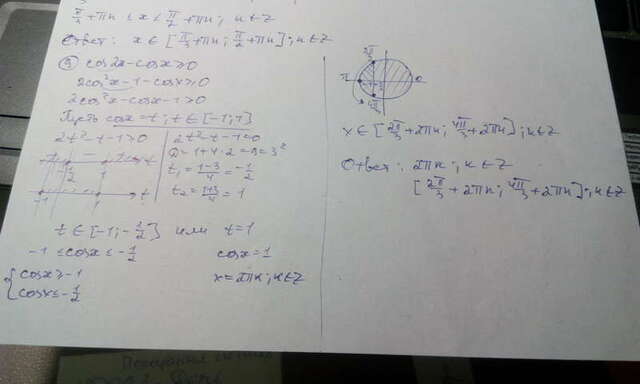 π/3 + πn ≤ x < π/2 + πn; n ∈ Z
Ответ: x ∈ [π/3 + πn; π/2 + πn); n ∈ Z
⑨ cos2x - cosx ≥ 0
2cos²x - 1 - cosx ≥ 0
2cos²x - cosx - 1 ≥ 0
Пусть cosx = t; t ∈ [-1; 1]
2t² - t - 1 ≥ 0
-1/2 1 t
-1 1 t
2t² - t - 1 = 0
D = 1 + 4·2 = 9 = 3²
t₁ = (1-3)/4 = -1/2
t₂ = (1+3)/4 = 1
t ∈ [-1; -1/2] или t = 1
-1 ≤ cosx ≤ -1/2 cosx = 1
{ cosx ≥ -1 x = 2πn; n ∈ Z
cosx ≤ -1/2
2π/3
π 0
4π/3
x ∈ [2π/3 + 2πn; 4π/3 + 2πn]; n ∈ Z
Ответ: 2πn; n ∈ Z
[2π/3 + 2πn; 4π/3 + 2πn]; n ∈ Z